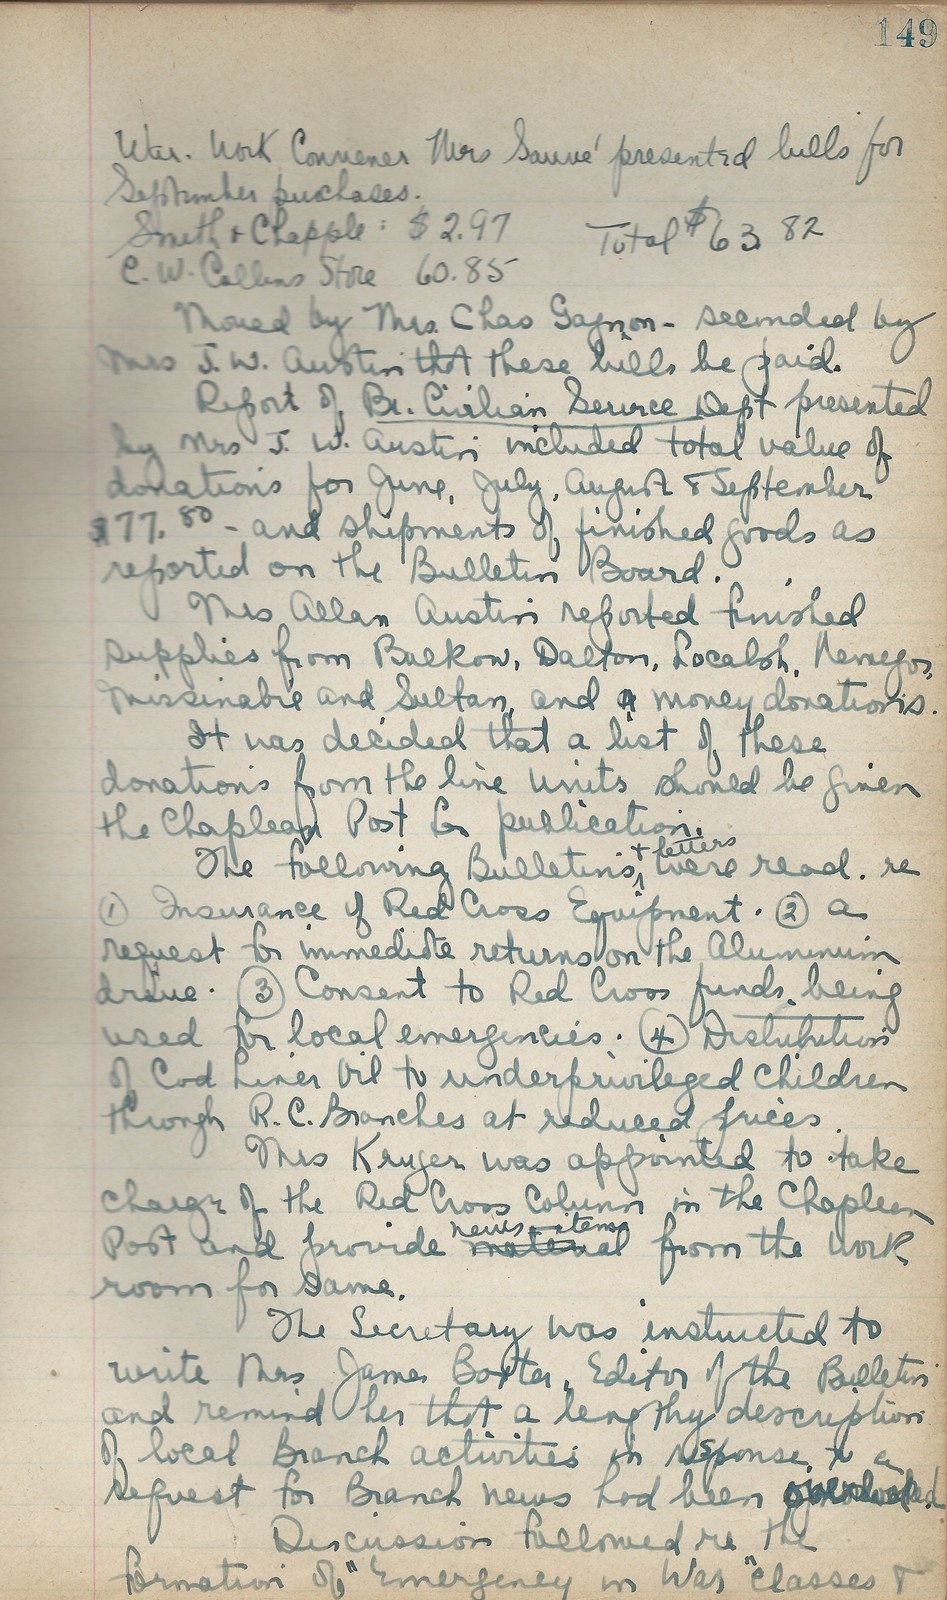 149
War. Work Convener Mrs Sauvé presented bills for
September purchases.
Smith & Chapple: $2.97 Total $63.82
C. W. Collins Store 60.85
Moved by Mrs. Chas Gagnon - seconded by
Mrs J. W. Austin that these bills be paid.
Report of Br. Civilian Service Dept presented
by Mrs J. W. Austin included total value of
donations for June, July, August & September
$77.80 - and shipments of finished goods as
reported on the Bulletin Board.
Mrs Allan Austin reported finished
supplies from Bulkow, Dalton, Localsh, Nemegos,
Missinabie and Sultan, and money donations.
It was decided that a list of these
donations from the line units should be given
the Chapleau Post for publication.
The following Bulletins + letters were read. re
① Insurance of Red Cross Equipment. ② a
request for immediate returns on the Aluminium
drive. ③ Consent to Red Cross funds being
used for local emergencies. ④ Distribution
of Cod Liver Oil to underprivileged children
through R.C. Branches at reduced prices.
Mrs Kruger was appointed to take
charge of the Red Cross Column in the Chapleau
Post and provide news items from the work
room for same.
The Secretary was instructed to
write Mrs James Editor of the Bulletin
and remind her that a lengthy description
of local Branch activities in response to a
request for Branch news had been overlooked
Discussion followed re the
formation of "Emergency in War" classes &